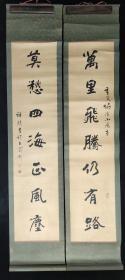 萬里飛騰仍有路
莫愁四海正風塵